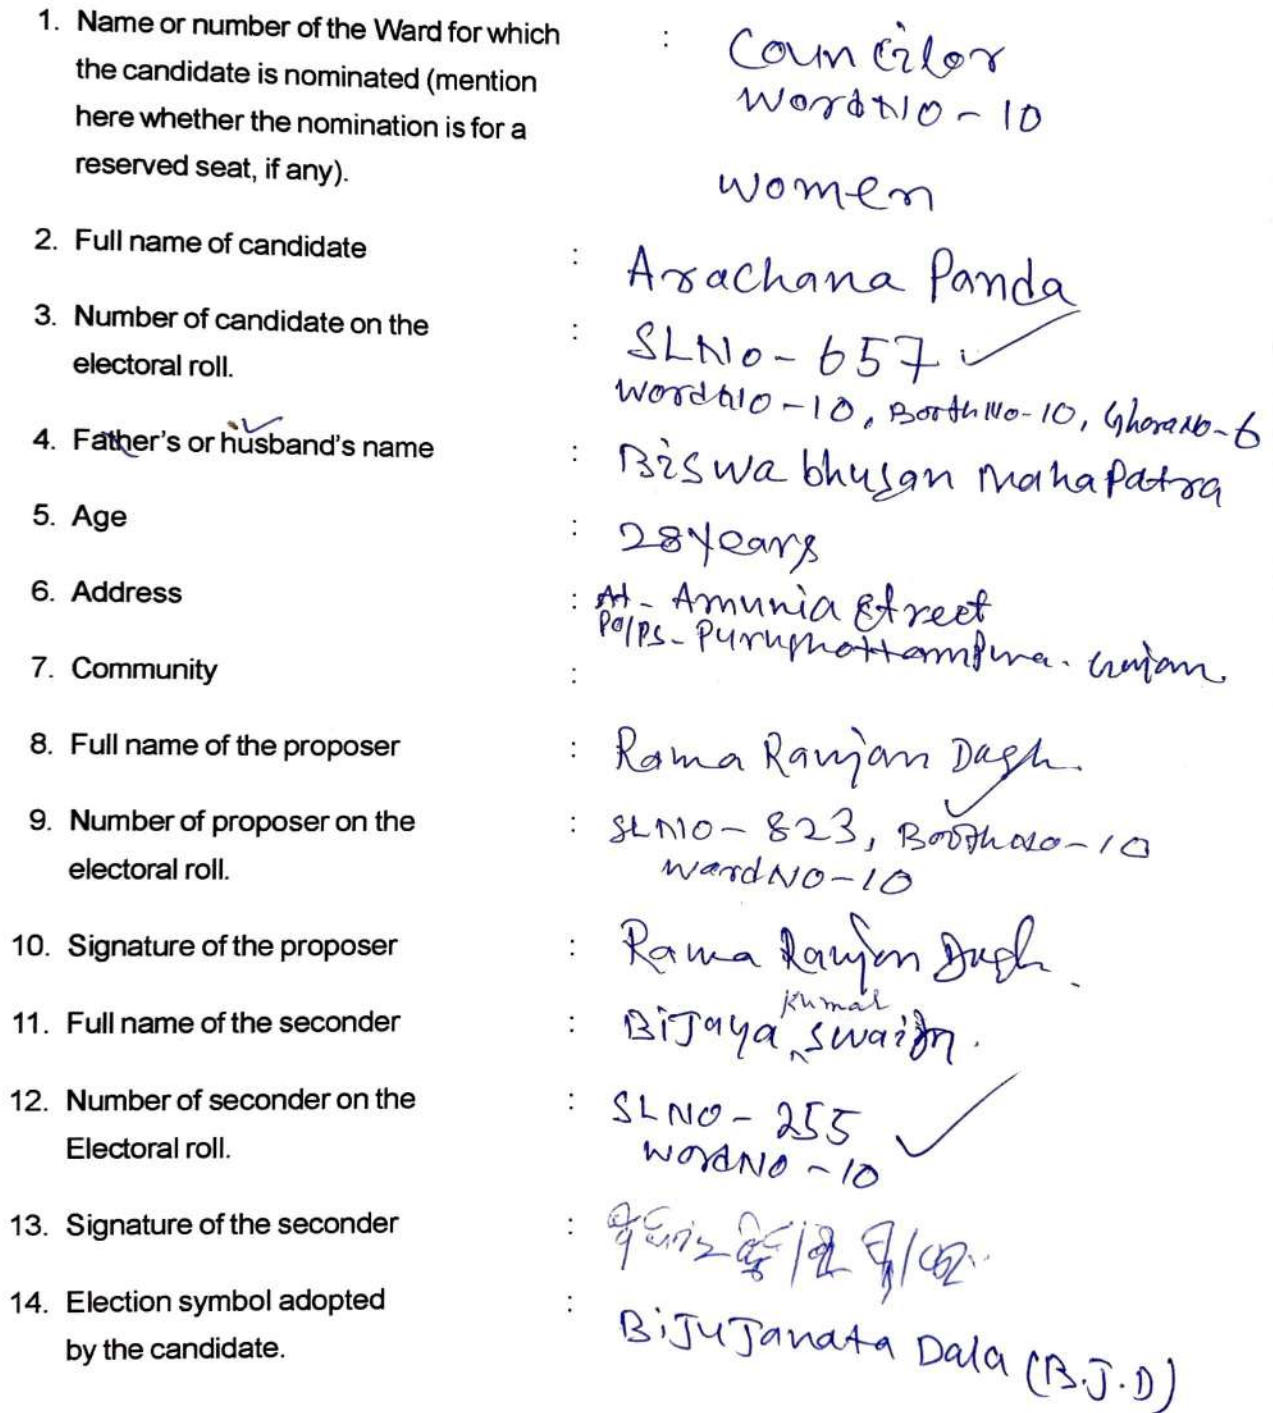 1. Name or number of the Ward for which : Councilor
the candidate is nominated (mention WordNO - 10
here whether the nomination is for a
reserved seat, if any). women
2. Full name of candidate : Arachana Panda
3. Number of candidate on the : SLNo - 657
electoral roll. WordNo - 10, Booth No - 10, Ghara No - 6
4. Father's or husband's name : Biswa bhusan MahaPatra
5. Age : 28 Years
6. Address : At - Amunia Street
Po/PS - Purushottampur.
7. Community :
8. Full name of the proposer : Rama Ranjan Dash.
9. Number of proposer on the : SLNO - 823, Booth No - 10
electoral roll. Ward NO - 10
10. Signature of the proposer : Rama Ranjan Dash.
11. Full name of the seconder : BiJaya Kumar Swain.
12. Number of seconder on the : SLNO - 255
Electoral roll. WordNO - 10
13. Signature of the seconder :
14. Election symbol adopted : BiJu Janata Dala (B.J.D)
by the candidate.